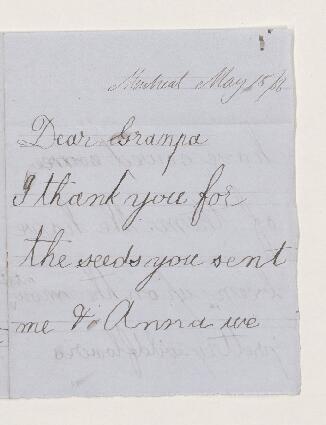 Montreal May 15/
Dear Granpa
I thank you for
the seeds you sent
me & Anna we